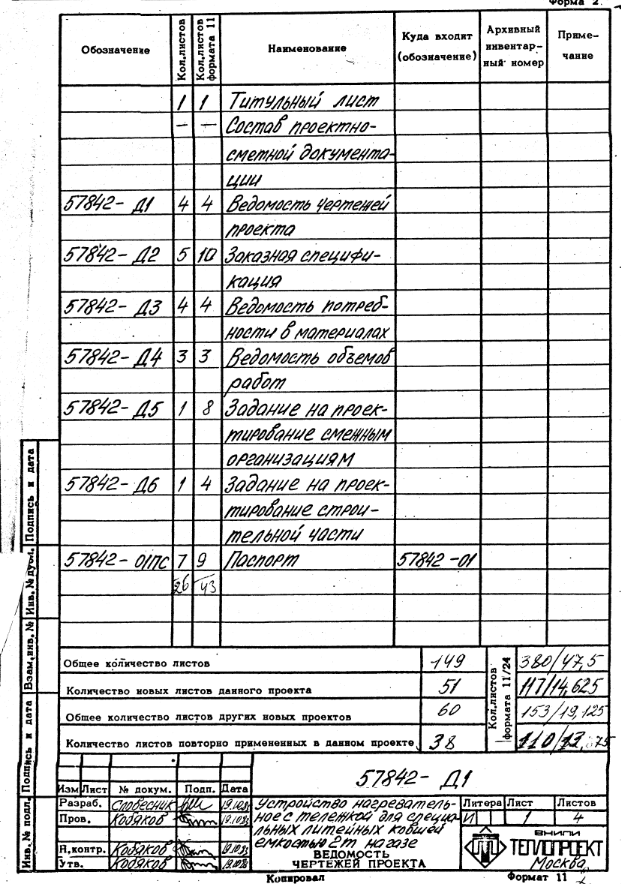 Форма 2.
Обозначение | Кол.листов | Кол.листов формата 11 | Наименование | Куда входит (обозначение) | Архивный инвентар-ный номер | Приме-чание
1 1 Титульный лист
— — Состав проектно-
сметной документа-
ции
57842- Д1 4 4 Ведомость чертежей
проекта
57842- Д2 5 10 Заказная специфи-
кация
57842- Д3 4 4 Ведомость потреб-
ности в материалах
57842- Д4 3 3 Ведомость объемов
работ
57842- Д5 1 8 Задание на проек-
тирование смежным
организациям
57842- Д6 1 4 Задание на проек-
тирование строи-
тельной части
57842- 01ПС 7 9 Паспорт 57842-01
26 43
Общее количество листов 149 380/47,5
Количество новых листов данного проекта 51 117/14,625
Общее количество листов других новых проектов 60 153/19,125
Количество листов повторно примененных в данном проекте 38 110/13,75
Кол.листов формата 11/24
57842- Д1
Изм Лист № докум. Подп. Дата
Разраб. Словесник
Пров. Кодяков
Н.контр. Кодяков
Утв. Кодяков
Устройство нагреватель-
ное с тележкой для специа-
льных литейных ковшей
емкостью 2т на газе
ВЕДОМОСТЬ
ЧЕРТЕЖЕЙ ПРОЕКТА
Литера Лист Листов
И 1 4
ВНИПИ
ТЕПЛОПРОЕКТ
Москва
Копировал Формат 11
Инв. № подл. Подпись и дата Взам.инв. № Инв. № дубл. Подпись и дата